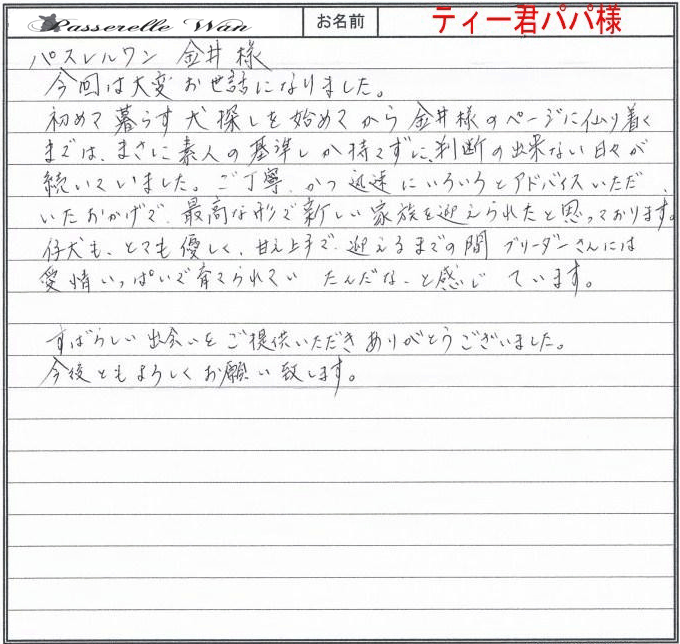 Passerelle Wan お名前 ティー君パパ様
パスレルワン 金井様
今回は大変お世話になりました。
初めて暮らす犬探しを始めてから金井様のページに辿り着く
までは、まさに素人の基準しか持てずに、判断の出来ない日々が
続いていました。ご丁寧、かつ迅速にいろいろとアドバイスいただ
いたおかげで、最高な形で新しい家族を迎えられたと思っております。
仔犬も、とても優しく、甘え上手で、迎えるまでの間ブリーダーさんには
愛情いっぱいで育てられていたんだな、と感じています。
すばらしい出会いをご提供いただきありがとうございました。
今後ともよろしくお願い致します。